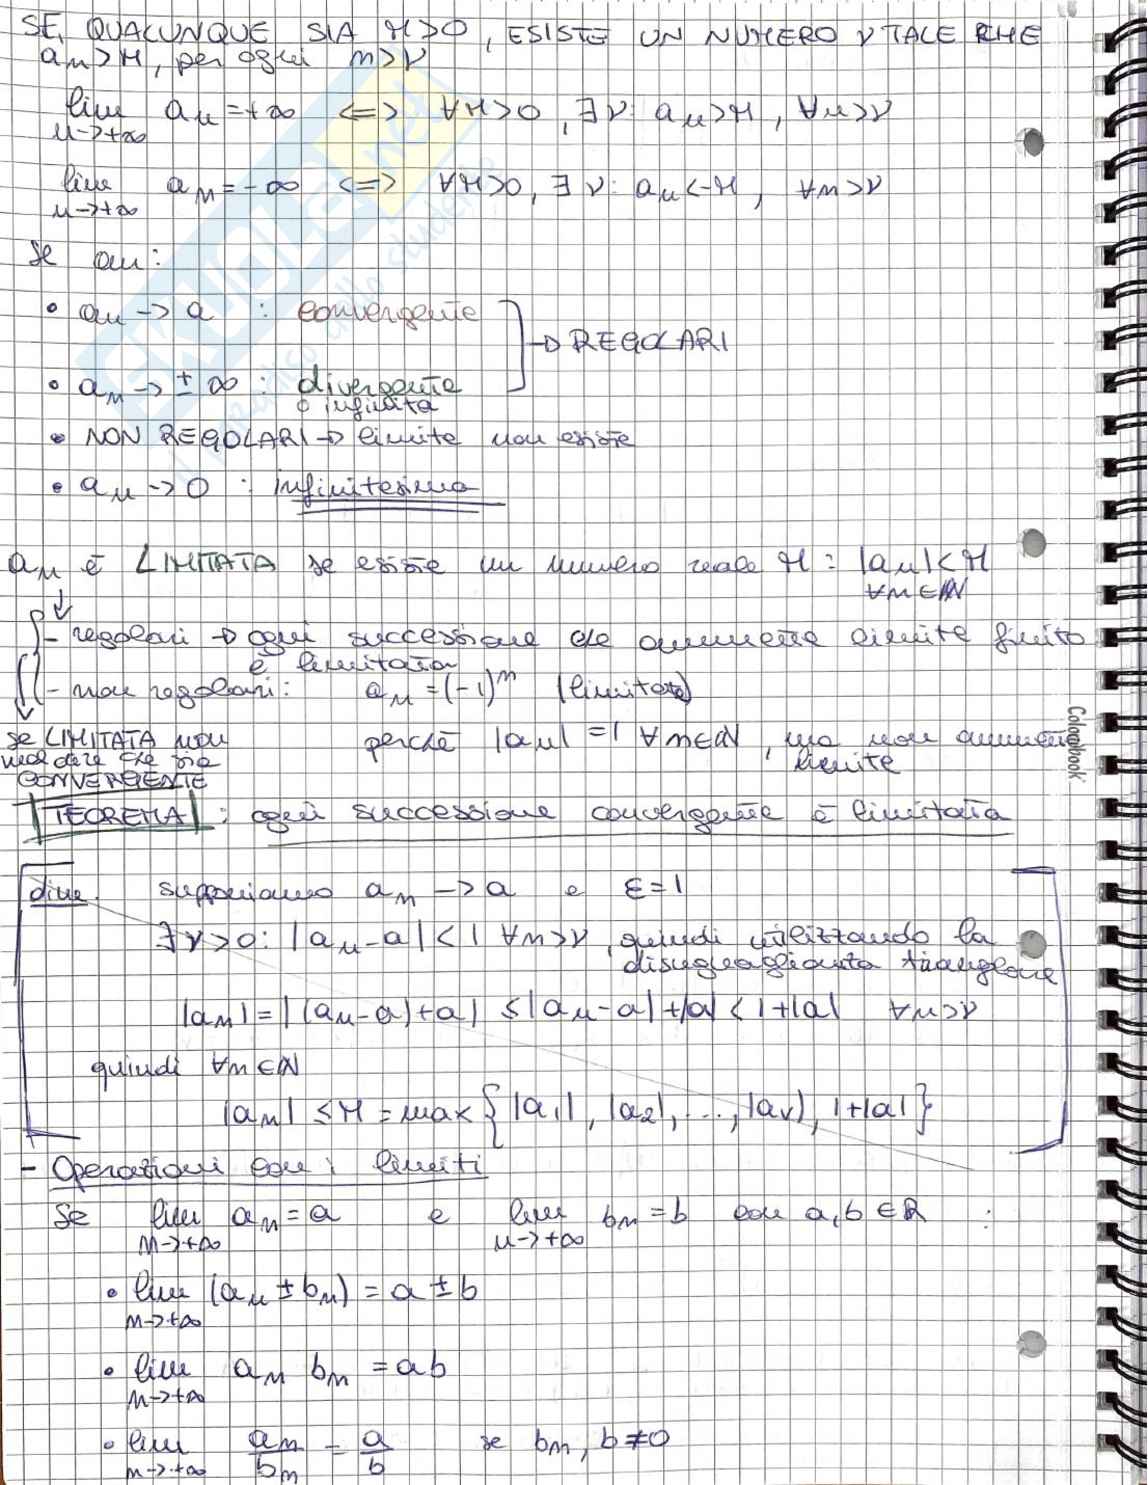 SE, QUALUNQUE SIA M>0, ESISTE UN NUMERO ν TALE CHE
aₙ>M, per ogni n>ν
lim aₙ=+∞ <=> ∀M>0, ∃ν: aₙ>M, ∀n>ν
n->+∞
lim aₙ=-∞ <=> ∀M>0, ∃ν: aₙ<-M, ∀n>ν
n->+∞
se aₙ:
• aₙ -> a : convergente
-> REGOLARI
• aₙ -> ±∞ : divergente
o infinita
• NON REGOLARI -> limite non esiste
• aₙ -> 0 : infinitesima
aₙ è LIMITATA se esiste un numero reale M : |aₙ|<M
∀n∈ℕ
- regolari -> ogni successione che ammette limite finito
è limitata
- non regolari: aₙ=(-1)ⁿ (limitata)
se LIMITATA non
vuol dire che sia
CONVERGENTE
perché |aₙ|=1 ∀n∈ℕ, ma non ammette
limite
TEOREMA : ogni successione convergente è limitata
dim. supponiamo aₙ -> a e ε=1
∃ν>0: |aₙ-a|<1 ∀n>ν, quindi utilizzando la
disuguaglianza triangolare
|aₙ|=|(aₙ-a)+a| ≤|aₙ-a|+|a|<1+|a| ∀n>ν
quindi ∀n∈ℕ
|aₙ| ≤M=max{|a₁|, |a₂|, ..., |aν|, 1+|a|}
- Operazioni con i limiti
Se lim aₙ=a e lim bₙ=b con a,b∈ℝ :
n->+∞ n->+∞
• lim (aₙ±bₙ)=a±b
n->+∞
• lim aₙ bₙ=ab
n->+∞
• lim aₙ/bₙ = a/b se bₙ, b≠0
n->+∞
SKUOLA.net
il paradiso dello studente
Colorbook